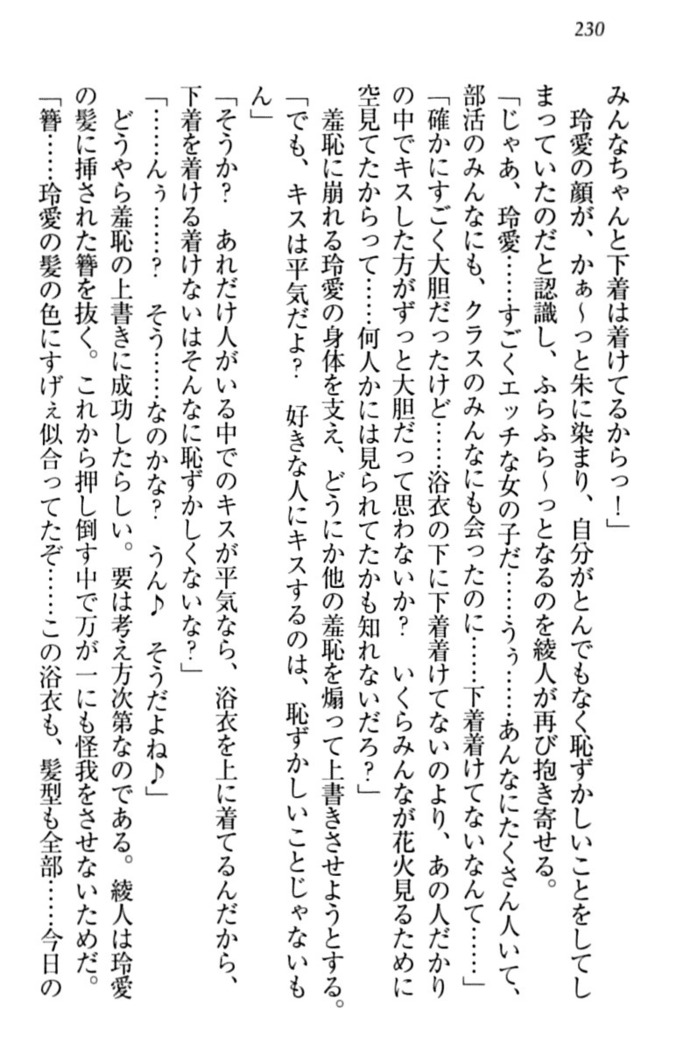 230
みんなちゃんと下着は着けてるからっ！」
玲愛の顔が、かぁ～っと朱に染まり、自分がとんでもなく恥ずかしいことをしてし
まっていたのだと認識し、ふらふら～っとなるのを綾人が再び抱き寄せる。
「じゃあ、玲愛……すごくエッチな女の子だ……うぅ……あんなにたくさん人いて、
部活のみんなにも、クラスのみんなにも会ったのに……下着着けてないなんて……」
「確かにすごく大胆だったけど……浴衣の下に下着着けてないのより、あの人だかり
の中でキスした方がずっと大胆だって思わないか？　いくらみんなが花火見るために
空見てたからって……何人かには見られてたかも知れないだろ？」
羞恥に崩れる玲愛の身体を支え、どうにか他の羞恥を煽って上書きさせようとする。
「でも、キスは平気だよ？　好きな人にキスするのは、恥ずかしいことじゃないも
ん」
「そうか？　あれだけ人がいる中でのキスが平気なら、浴衣を上に着てるんだから、
下着を着ける着けないはそんなに恥ずかしくないな？」
「……んぅ……？　そう……なのかな？　うん♪　そうだよね♪」
どうやら羞恥の上書きに成功したらしい。要は考え方次第なのである。綾人は玲愛
の髪に挿された簪を抜く。これから押し倒す中で万が一にも怪我をさせないためだ。
「簪……玲愛の髪の色にすげぇ似合ってたぞ……この浴衣も、髪型も全部……今日の